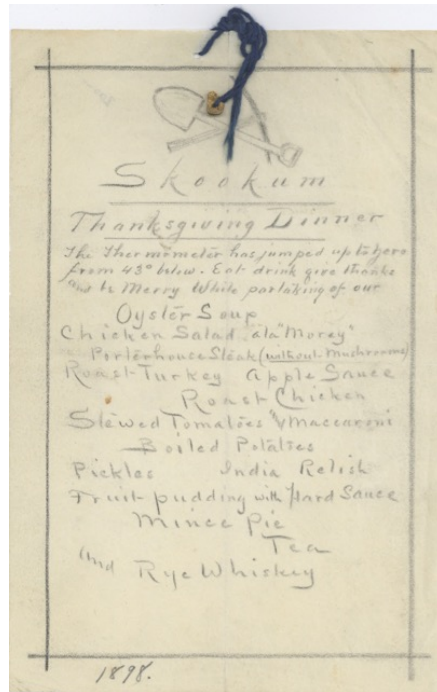 Skookum
Thanksgiving Dinner
The Thermometer has jumped up to hero
from 43° below. Eat drink give thanks
and be Merry While partaking of our
Oyster Soup
Chicken Salad "ala Morey"
Porterhouse Steak (without Mushrooms)
Roast Turkey Apple Sauce
Roast Chicken
Stewed Tomatoes & Maccaroni
Boiled Potatoes
Pickles India Relish
Fruit pudding with Hard Sauce
Mince Pie
Tea
and Rye Whiskey
1898.